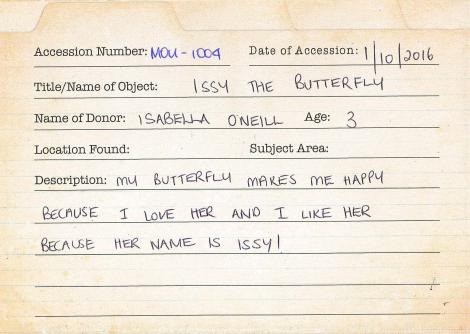 Accession Number: MOU-1004 Date of Accession: 1/10/2016
Title/Name of Object: ISSY THE BUTTERFLY
Name of Donor: ISABELLA O'NEILL Age: 3
Location Found: Subject Area:
Description: MY BUTTERFLY MAKES ME HAPPY
BECAUSE I LOVE HER AND I LIKE HER
BECAUSE HER NAME IS ISSY!